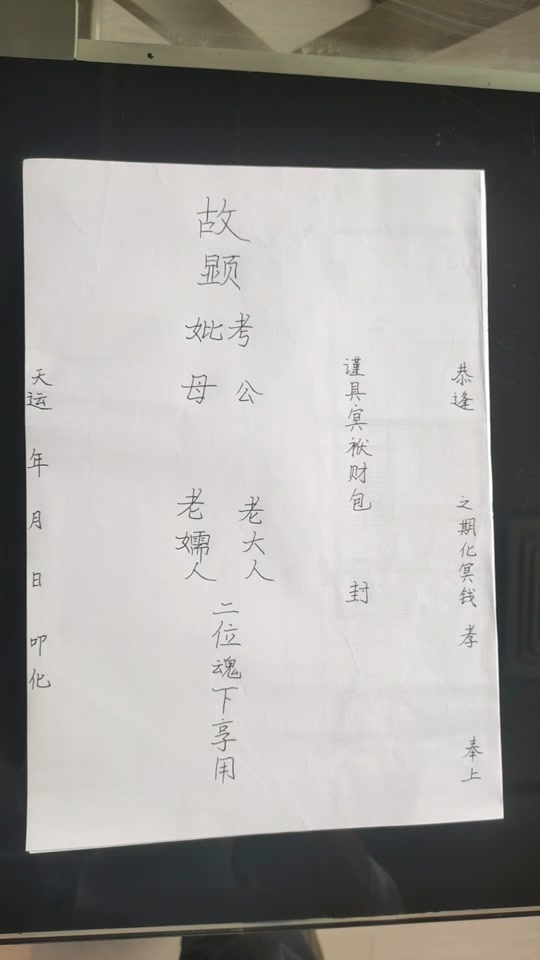 恭逢 之期化冥钱 孝 奉上
谨具冥袱财包 封
故显
考公 老大人
妣母 老孺人
二位魂下享用
天运 年 月 日 叩化